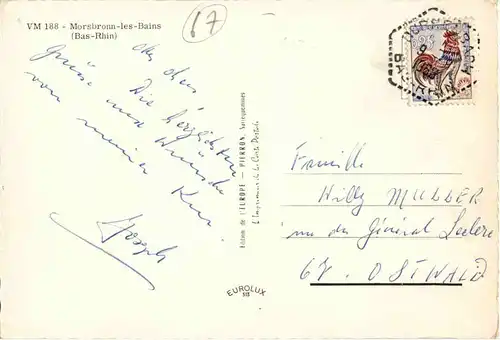 VM 188 - Morsbronn-les-Bains
(Bas-Rhin)
67
Die herzlichsten
Grüsse und Wünsche
von meiner Kur.
Joseph
Edition de l'EUROPE — PIERRON, Sarreguemines
L'Imprimeur de la Carte Postale
EUROLUX
Famille
Willy MULLER
rue du Général Leclerc
67. OSTWALD